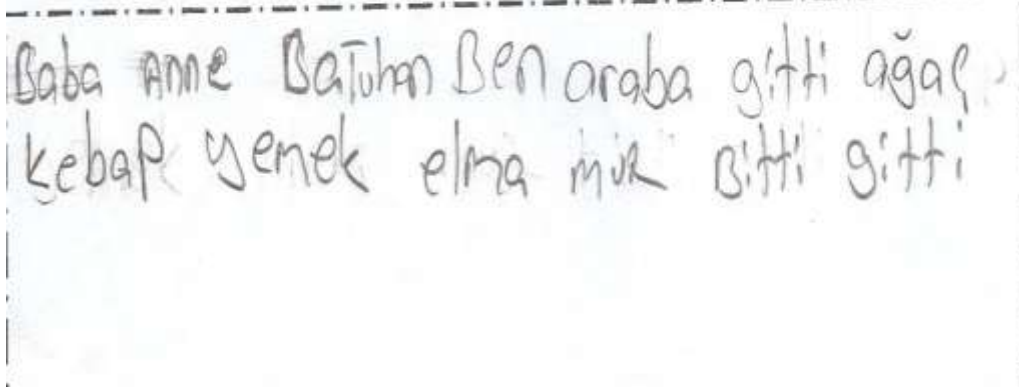 Baba Anne Batuhan Ben araba gitti ağaç
kebap yemek elma muz Bitti gitti